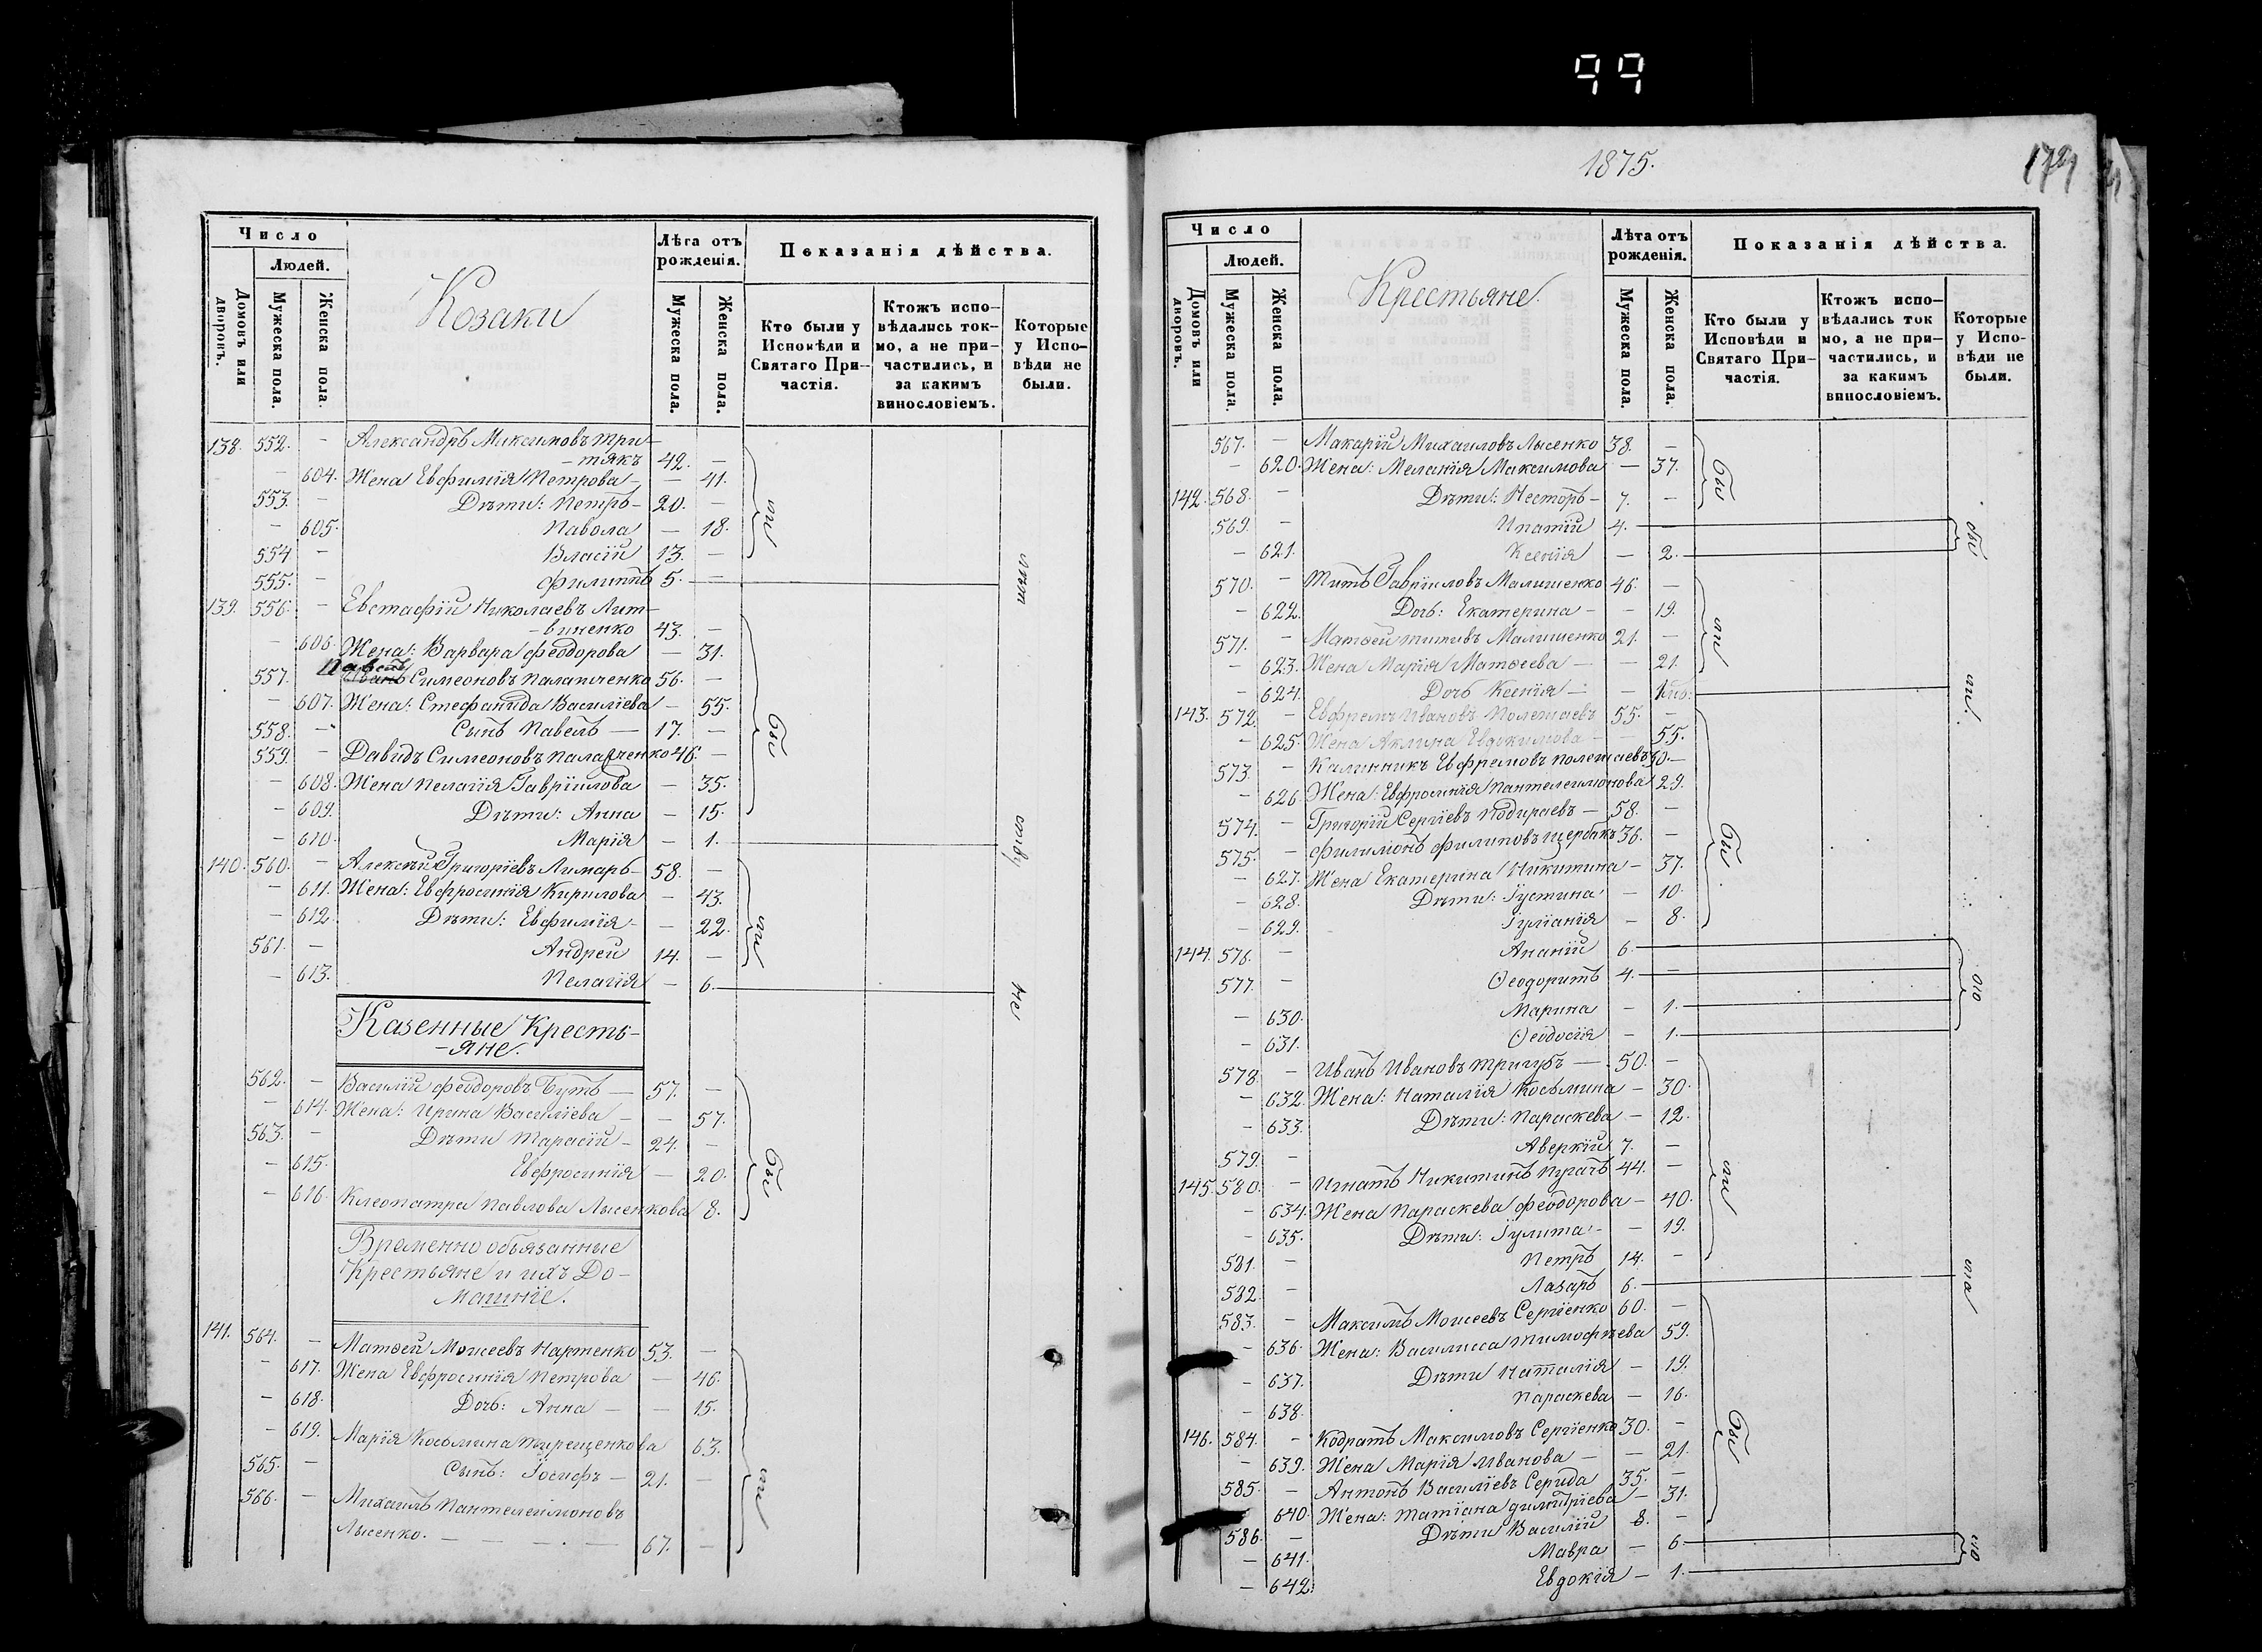 99
1875.
Число
Людей.
Домовъ или дворовъ.
Мужеска пола.
Женска пола.
Козаки
Лѣта отъ рожденія.
Мужеска пола.
Женска пола.
Показанія дѣйства.
Кто были у Исповѣди и Святаго При-
частія.
Ктожъ испо-
вѣдались ток-
мо, а не при-
частились, и
за какимъ
винословіемъ.
Которые
у Испо-
вѣди не
были.
138. 552. - Александръ Максимовъ Три-
-тякъ 42. -
- 604. Жена Евфимія Петрова - - 41.
553. - Дѣти: Петръ - 20. -
- 605. Павола - 18.
554 - Власій 13. -
555. - Филиппъ 5. -
139. 556. - Евстафій Николаевъ Лит-
-виненко 43. -
- 606. Жена: Варвара Феодорова - 31.
Павелъ
557. Иванъ Симеоновъ Палатченко 56. -
- 607. Жена: Стефанида Василіева - 55.
558. - Сынъ Павелъ - 17. -
559. - Давидъ Симеоновъ Палатченко 46. -
- 608. Жена Пелагія Гавріилова - 35.
- 609. Дѣти: Анна - 15.
- 610. Марія - 1.
140. 560. - Алексѣй Григоріевъ Лимарь - 58. -
- 611. Жена: Евфросинія Кирилова - 43.
- 612. Дѣти: Евфимія - - 22.
561. - Андрей 14. -
- 613. Пелагія - 6.
Казенные Кресть-
-яне.
562. - Василій Феодоровъ Бутъ - 57. -
- 614. Жена: Ирина Василіева - - 57.
563. - Дѣти Тарасій - 24. -
- 615. Евфросинія - 20.
- 616. Клеопатра Павлова Лысенкова 8.
Временно обязанные
Крестьяне и ихъ До-
машніе.
141. 564. - Матѳей Моисеевъ Нартенко 53. -
- 617. Жена Евфросинія Петрова - 46.
- 618. Дочь: Анна - - 15.
- 619. Марія Косьмина Терещенкова 63.
565. - Сынъ: Іосифъ - 21. -
566. - Михаилъ Пантелеимоновъ
Лысенко. - - - 67. -
Число
Людей.
Домовъ или дворовъ.
Мужеска пола.
Женска пола.
Крестьяне.
Лѣта отъ рожденія.
Мужеска пола.
Женска пола.
Показанія дѣйства.
Кто были у
Исповѣди и
Святаго При-
частія.
Ктожъ испо-
вѣдались ток
мо, а не при-
частились, и
за какимъ
винословіемъ.
Которые
у Испо-
вѣди не
были.
567. - Макарій Михаиловъ Лысенко 38. -
- 620. Жена: Меланія Максимова - 37.
142. 568. - Дѣти: Несторъ - 7. -
569. - Ипатій 4. -
- 621. Ксенія - 2.
570. - Титъ Гавріиловъ Малишенко 46. -
- 622. Дочь: Екатерина - - 19.
571. - Матѳей Титовъ Малишенко 21. -
- 623. Жена Марія Матѳеева - - 21.
- 624. Дочь Ксенія - -
143. 572. - Евфремъ Ивановъ Полетаевъ 55. -
- 625. Жена Акилина Евдокимова - - 55.
573. - Калинникъ Евфремовъ Полетаевъ 30. -
- 626. Жена: Евфросинія Пантелеимонова 29.
574. - Григорій Сергіевъ Кодираевъ - 58. -
575. - Филимонъ Филиповъ Щербакъ 36. -
- 627. Жена Екатерина Никитина - 37.
- 628. Дѣти: Іустина - 10.
- 629. Іуліанія - 8.
144. 576. - Ананій 6. -
577. - Ѳеодоритъ 4. -
- 630. Марина - 1.
- 631. Ѳеодосія - 1.
578. - Иванъ Ивановъ Тригубъ - 50. -
- 632. Жена: Наталія Косьмина - 30.
- 633. Дѣти: Параскева - 12.
579. - Аверкій 7. -
145. 580. - Игнатъ Никитинъ Пугачъ 44. -
- 634. Жена Параскева Феодорова - 40.
- 635. Дѣти: Іулита - - 19.
581. - Петръ 14. -
582. - Лазарь 6. -
583. - Максимъ Моисеевъ Сергіенко 60. -
- 636. Жена: Василисса Тимофѣева 59.
- 637. Дѣти Наталія - 19.
- 638. Параскева - 16.
146. 584. - Кодратъ Максимовъ Сергіенко 30. -
- 639. Жена Марія Иванова - - 21.
585. - Антонъ Василіевъ Середа 35. -
640. Жена: Татіана Димитріева - 31.
586. - Дѣти Василій 8. -
- 641. Мавра - 6.
- 642. Евдокія - 1.